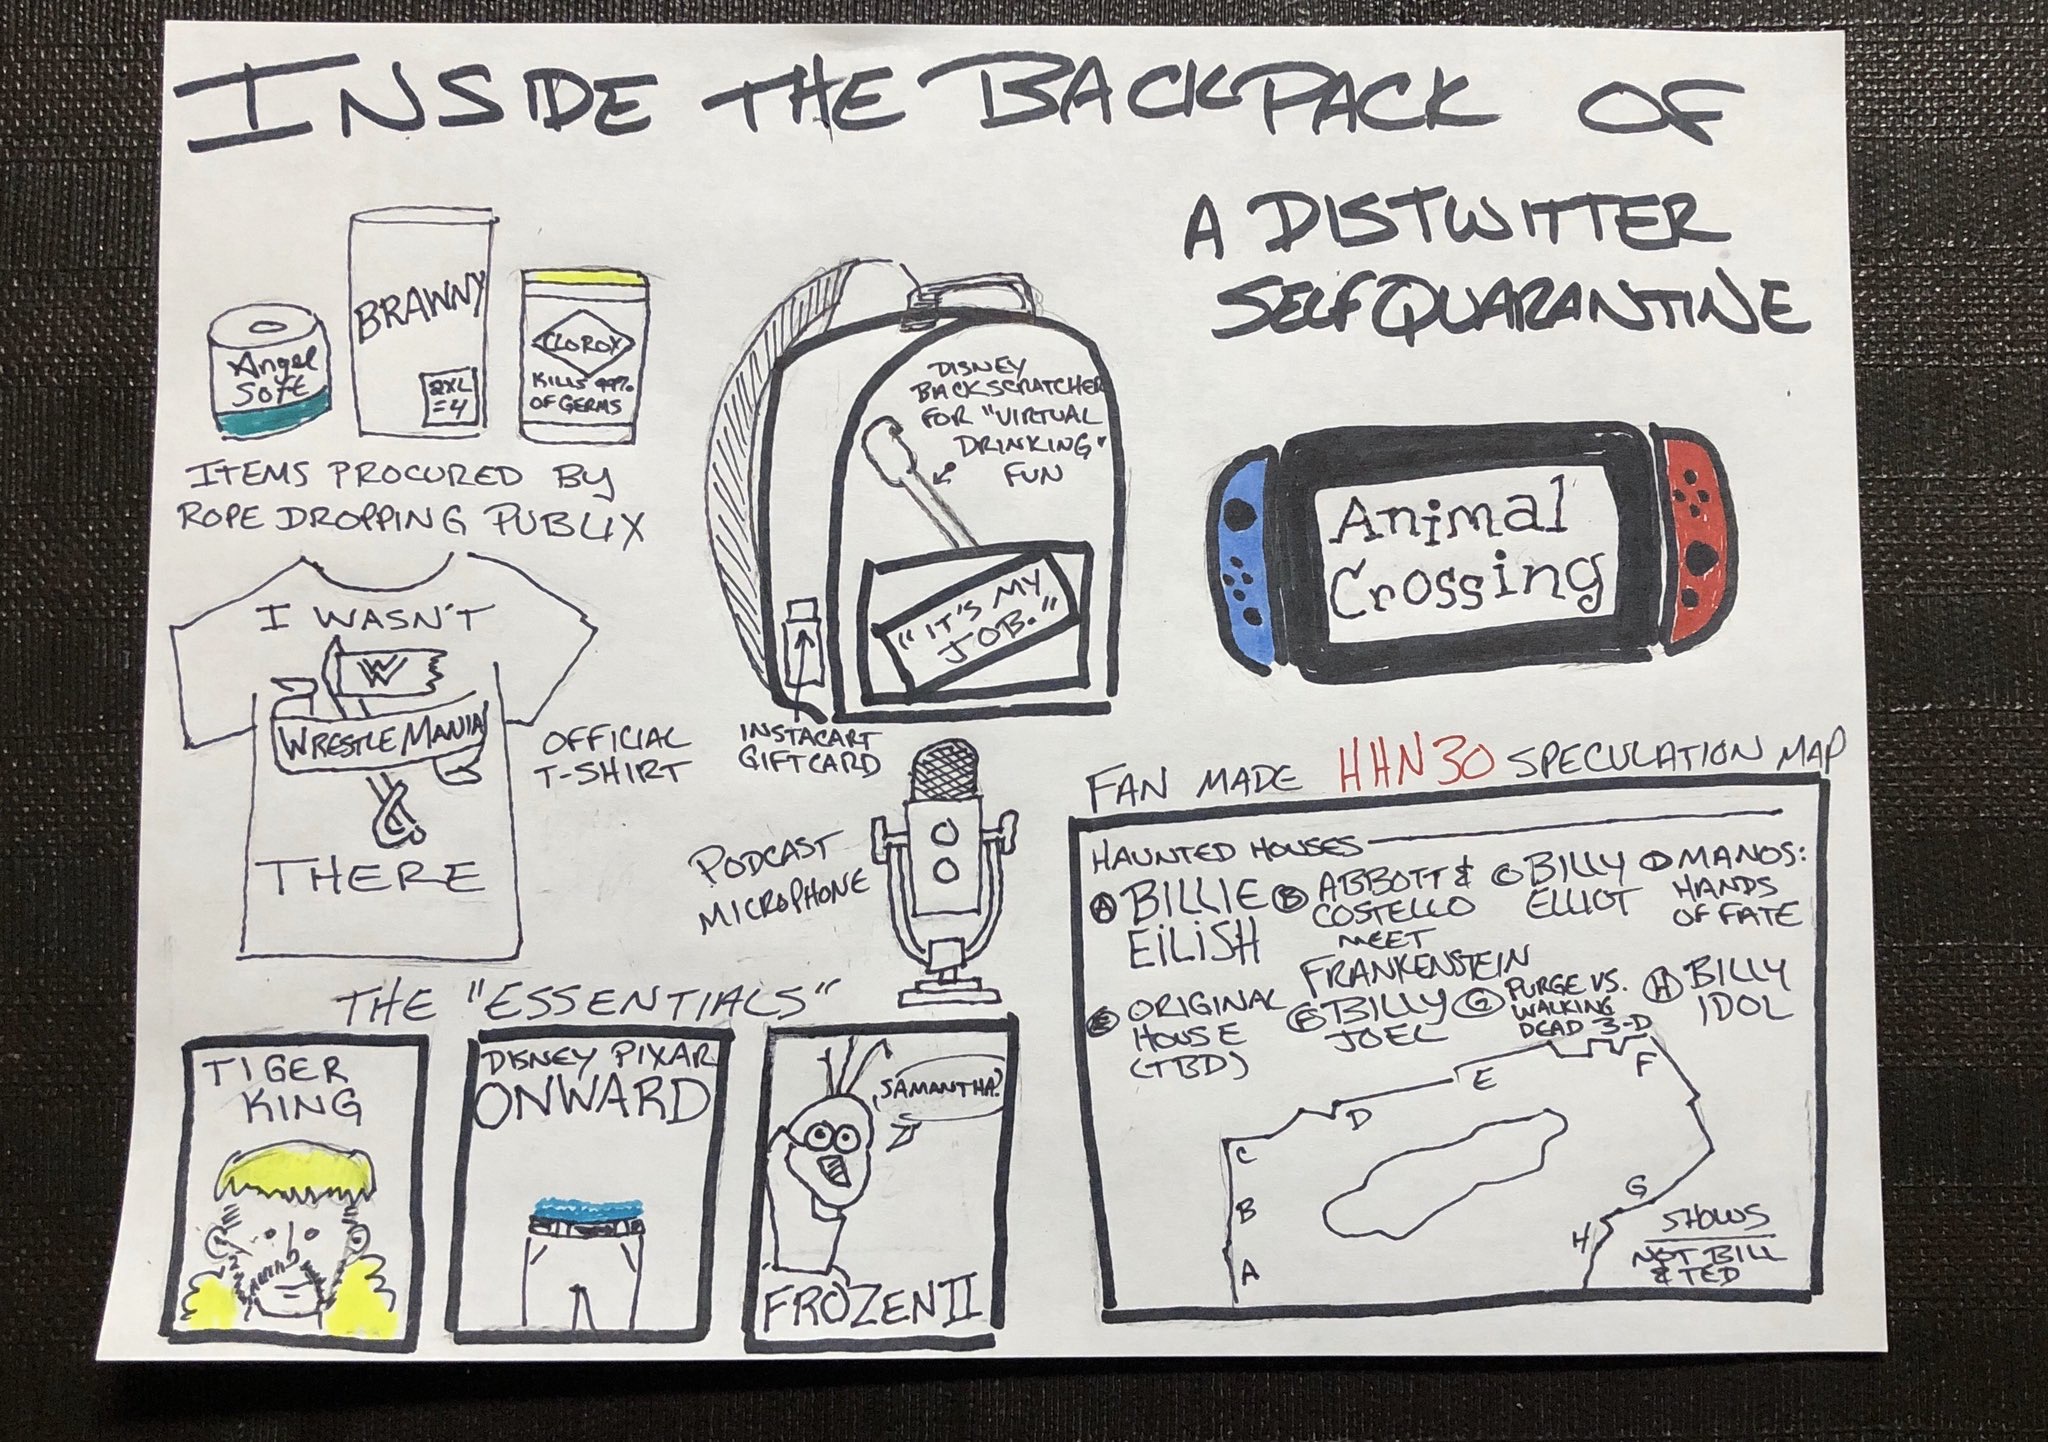 INSIDE THE BACKPACK OF
A DISTWITTER
SELF QUARANTINE
Angel
Soft
BRAWNY
2XL
=4
CLOROX
KILLS 99%
OF GERMS
ITEMS PROCURED BY
ROPE DROPPING PUBLIX
DISNEY
BACKSCRATCHER
FOR "VIRTUAL
DRINKING"
FUN
"IT'S MY
JOB."
INSTACART
GIFTCARD
Animal
Crossing
I WASN'T
W
WRESTLEMANIA
THERE
OFFICIAL
T-SHIRT
PODCAST
MICROPHONE
THE "ESSENTIALS"
TIGER
KING
DISNEY PIXAR
ONWARD
SAMANTHA?
FROZEN II
FAN MADE HHN30 SPECULATION MAP
HAUNTED HOUSES
A BILLIE
EILISH
B ABBOTT &
COSTELLO
MEET
FRANKENSTEIN
C BILLY
ELLIOT
D MANOS:
HANDS
OF FATE
E ORIGINAL
HOUSE
(TBD)
F BILLY
JOEL
G PURGE VS.
WALKING
DEAD 3-D
H BILLY
IDOL
F
E
D
C
B
A
G
H
SHOWS
NOT BILL
& TED